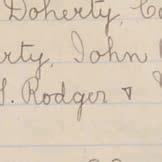 Doherty, Co
rty, John
S. Rodger &